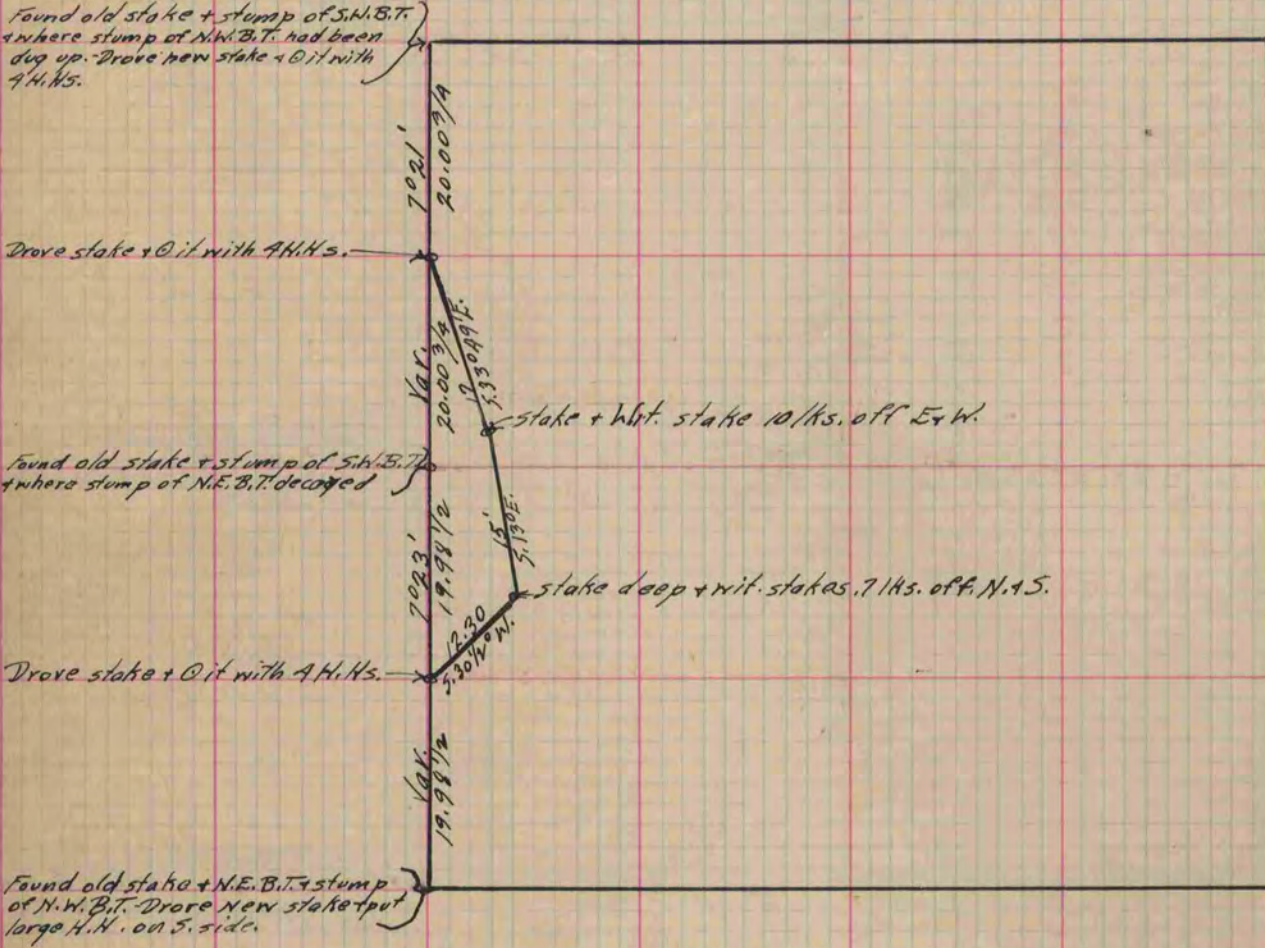 Found old stake + stump of S.W.B.T.
+ where stump of N.W.B.T. had been
dug up. - Drove new stake + ⊙ it with
4 H.Hs.
7°21'
20.00 3/4
Drove stake + ⊙ it with 4 H.Hs.
Var.
20.00 3/4
12
S.33°49'E.
stake + Wit. stake 10 lks. off E + W.
Found old stake + stump of S.W.B.T.
+ where stump of N.E.B.T. decayed
7°23'
19.98 1/2
15'
S.13°E.
stake deep + wit. stakes .7 lks. off. N. + S.
12.30
S.30 1/2° W.
Drove stake + ⊙ it with 4 H.Hs.
Var.
19.98 1/2
Found old stake + N.E.B.T. + stump
of N.W.B.T. - Drove New stake + put
large H.H. on S. side.